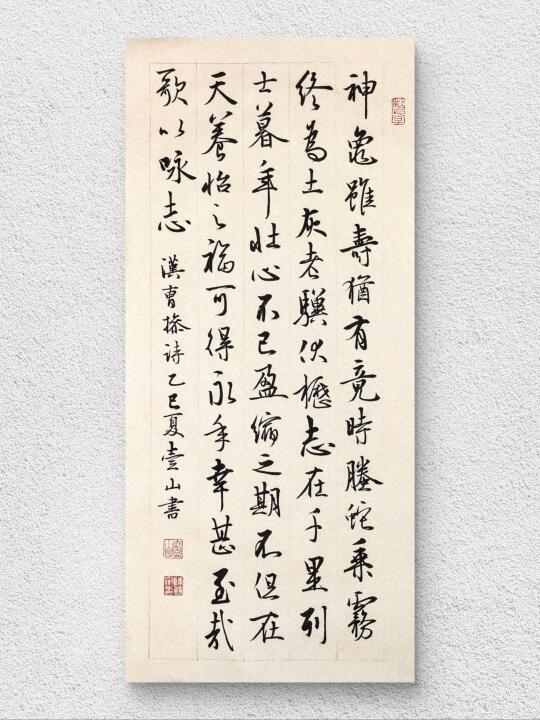 神龜雖壽猶有竟時螣蛇乘霧
終為土灰老驥伏櫪志在千里列
士暮年壯心不已盈縮之期不但在
天養怡之福可得永年幸甚至哉
歌以咏志 漢曹操诗乙巳夏壹山書